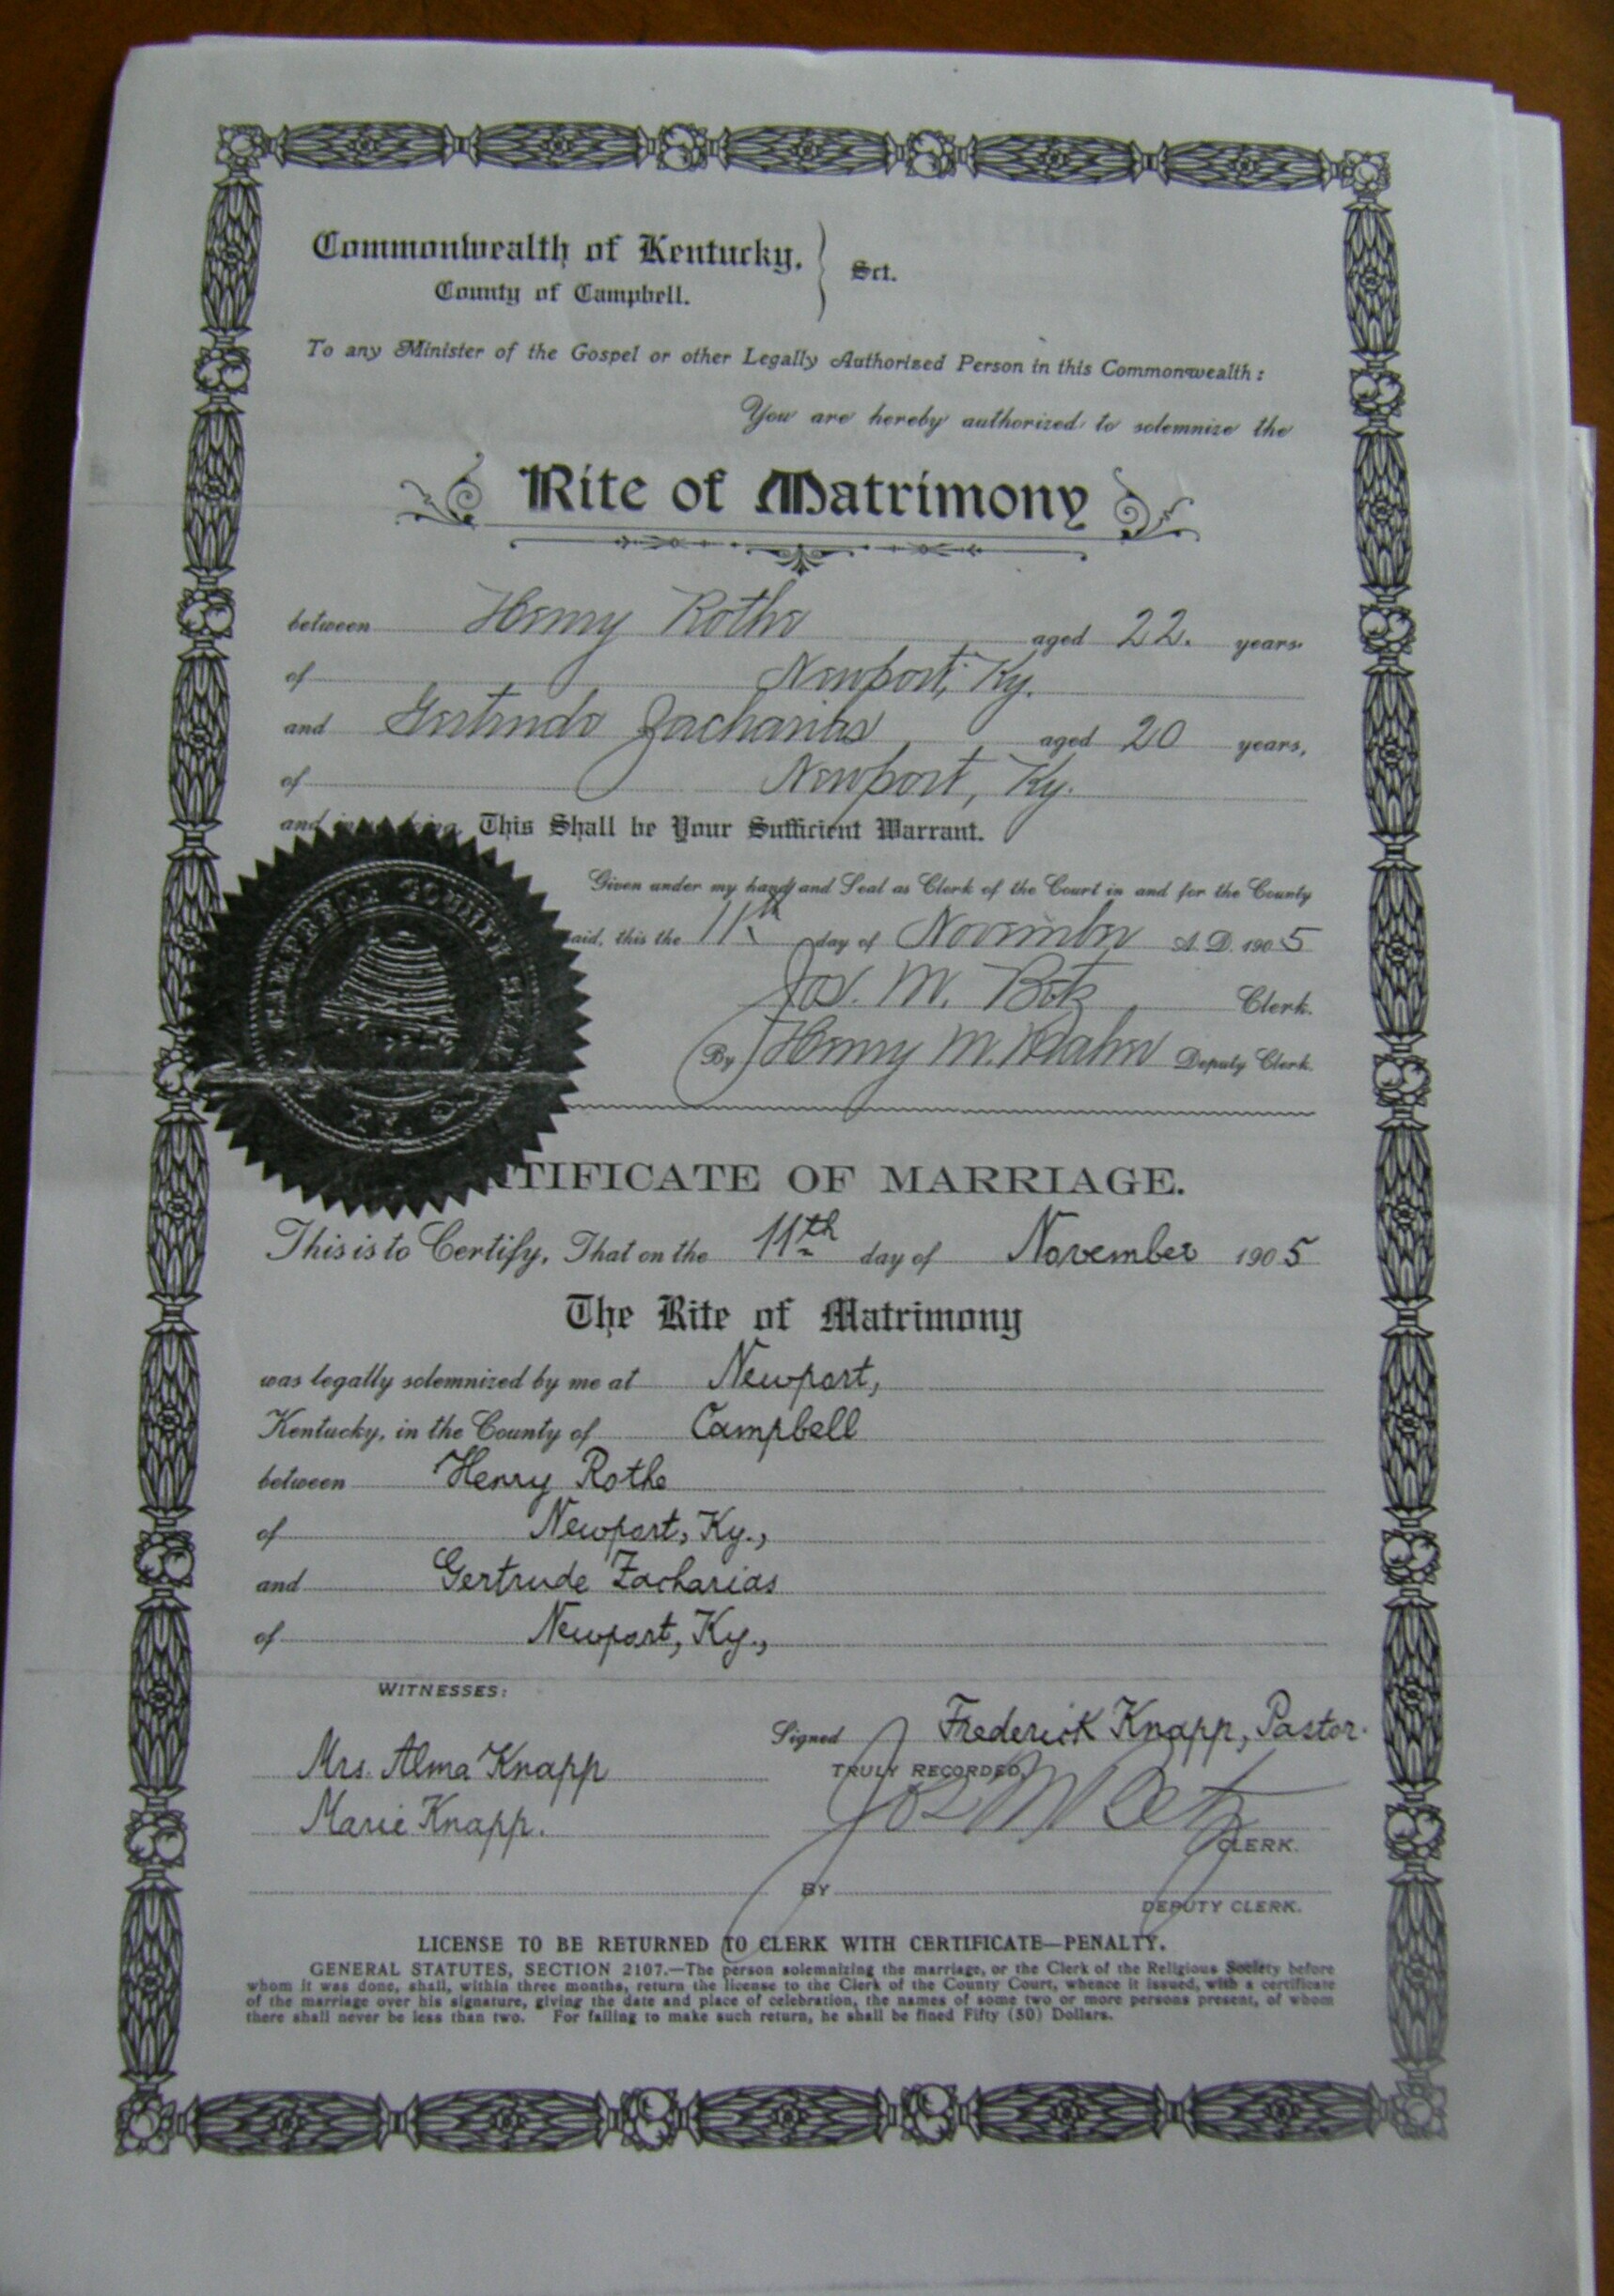 Commonwealth of Kentucky, } Sct.
County of Campbell.
To any Minister of the Gospel or other Legally Authorized Person in this Commonwealth:
You are hereby authorized to solemnize the
Rite of Matrimony
between Henry Rothe aged 22. years.
of Newport, Ky.
and Gertrude Zacharias aged 20 years,
of Newport, Ky.
and This Shall be Your Sufficient Warrant.
Given under my hand and Seal as Clerk of the Court in and for the County
said, this the 11th day of November A. D. 1905
Jos. M. Betz Clerk.
By Henry M. Deputy Clerk.
CAMPBELL COUNTY SEAL
KY.
TIFICATE OF MARRIAGE.
This is to Certify, That on the 11th day of November 1905
The Rite of Matrimony
was legally solemnized by me at Newport,
Kentucky, in the County of Campbell
between Henry Rothe
of Newport, Ky.,
and Gertrude Zacharias
of Newport, Ky.,
WITNESSES:
Signed Frederick Knapp, Pastor.
Mrs. Alma Knapp
TRULY RECORDED,
Marie Knapp.
Jos M Betz
CLERK.
BY
DEPUTY CLERK.
LICENSE TO BE RETURNED TO CLERK WITH CERTIFICATE—PENALTY.
GENERAL STATUTES, SECTION 2107.—The person solemnizing the marriage, or the Clerk of the Religious Society before
whom it was done, shall, within three months, return the license to the Clerk of the County Court, whence it issued, with a certificate
of the marriage over his signature, giving the date and place of celebration, the names of some two or more persons present, of whom
there shall never be less than two. For failing to make such return, he shall be fined Fifty (50) Dollars.